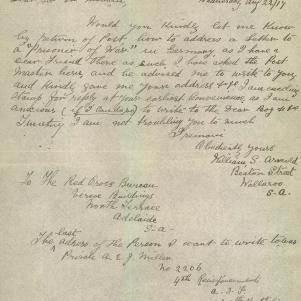 Wednesday Aug 22/17
Would you Kindly let me Know
by return of Post, how to address a letter to
a "Prisoner of War" in Germany, as I have a
dear friend there as such, I have asked the Post
Master here, and he advised me to write to you,
and Kindly gave me your address &c, I am sending
Stamp for reply at your earliest convenience, as I am
anxious ( to write to the Dear Boy &c
Trusting I am not troubling you to much
I remain
Obediently yours
William S. Arnold
Beaton Street
Wallaroo
S-A-
To The Red Cross Bureau
Verco Buildings
North Terrace
Adelaide
S-a-
last
The adress of the Person I want to write to was
Private A E J Miller
No 2206
4th Reinforcements
A. I. F.